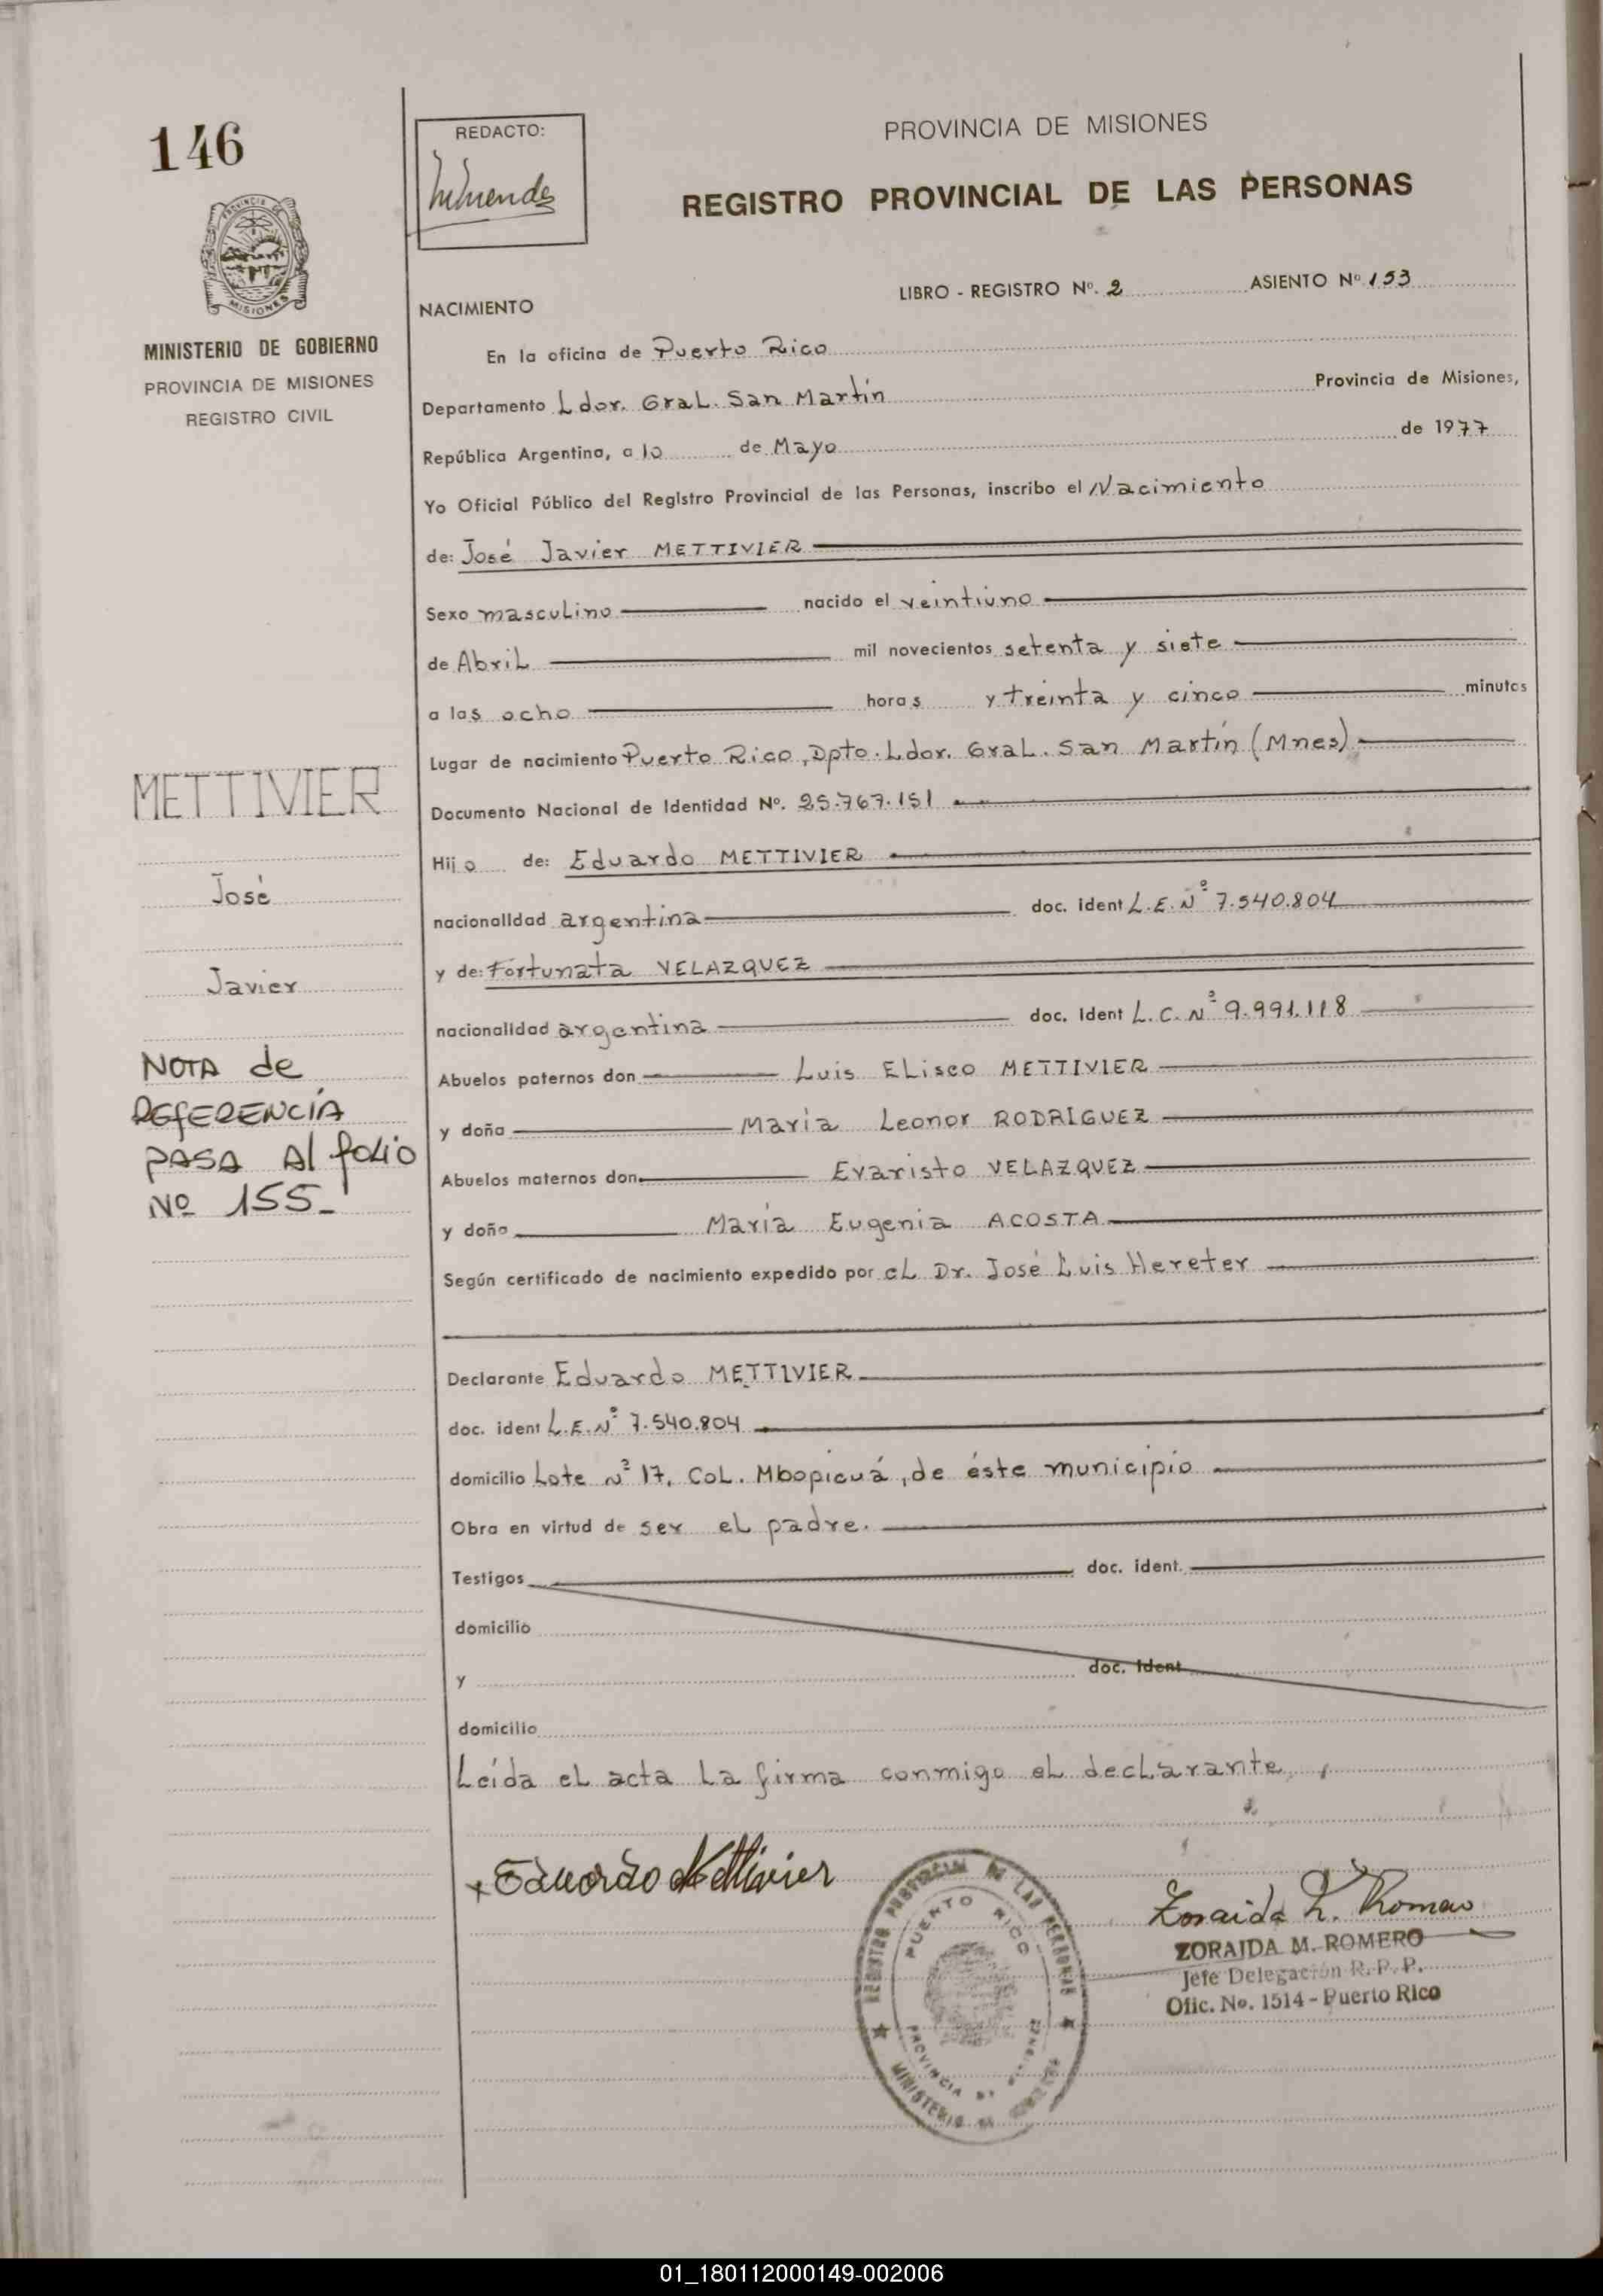 146
REDACTO:
PROVINCIA DE MISIONES
REGISTRO PROVINCIAL DE LAS PERSONAS
MISIONES
MINISTERIO DE GOBIERNO
PROVINCIA DE MISIONES
REGISTRO CIVIL
NACIMIENTO
LIBRO - REGISTRO Nº. 2 ASIENTO Nº 153
En la oficina de Puerto Rico
Departamento Ldor. Gral. San Martín Provincia de Misiones,
República Argentina, a 10 de Mayo de 1977
Yo Oficial Público del Registro Provincial de las Personas, inscribo el Nacimiento
de: José Javier METTIVIER
Sexo masculino nacido el veintiuno
de Abril mil novecientos setenta y siete
a las ocho horas y treinta y cinco minutos
Lugar de nacimiento Puerto Rico, Dpto. Ldor. Gral. San Martín (Mnes)
Documento Nacional de Identidad Nº. 25.767.151
Hijo de: Eduardo METTIVIER
nacionalidad argentina doc. ident L.E.Nº 7.540.804
y de: Fortunata VELAZQUEZ
nacionalidad argentina doc. Ident L.C.Nº 9.991.118
Abuelos paternos don Luis ELiseo METTIVIER
y doña María Leonor RODRIGUEZ
Abuelos maternos don Evaristo VELAZQUEZ
y doña María Eugenia ACOSTA
Según certificado de nacimiento expedido por el Dr. José Luis Hereter
Declarante Eduardo METTIVIER
doc. ident L.E.Nº 7.540.804
domicilio Lote nº 17, Col. Mbopicuá, de éste municipio
Obra en virtud de ser el padre.
Testigos doc. ident.
domicilio
y doc. Ident
domicilio
Leída el acta la firma conmigo el declarante,
METTIVIER
José
Javier
NOTA de
REFERENCIA
PASA Al folio
Nº 155-
Eduardo Mettivier
REGISTRO PROVINCIAL DE LAS PERSONAS
PUERTO RICO
PROVINCIA DE
MINISTERIO DE
Zoraida M. Romero
ZORAIDA M. ROMERO
Jefe Delegación R. P. P.
Ofic. No. 1514 - Puerto Rico
01_180112000149-002006